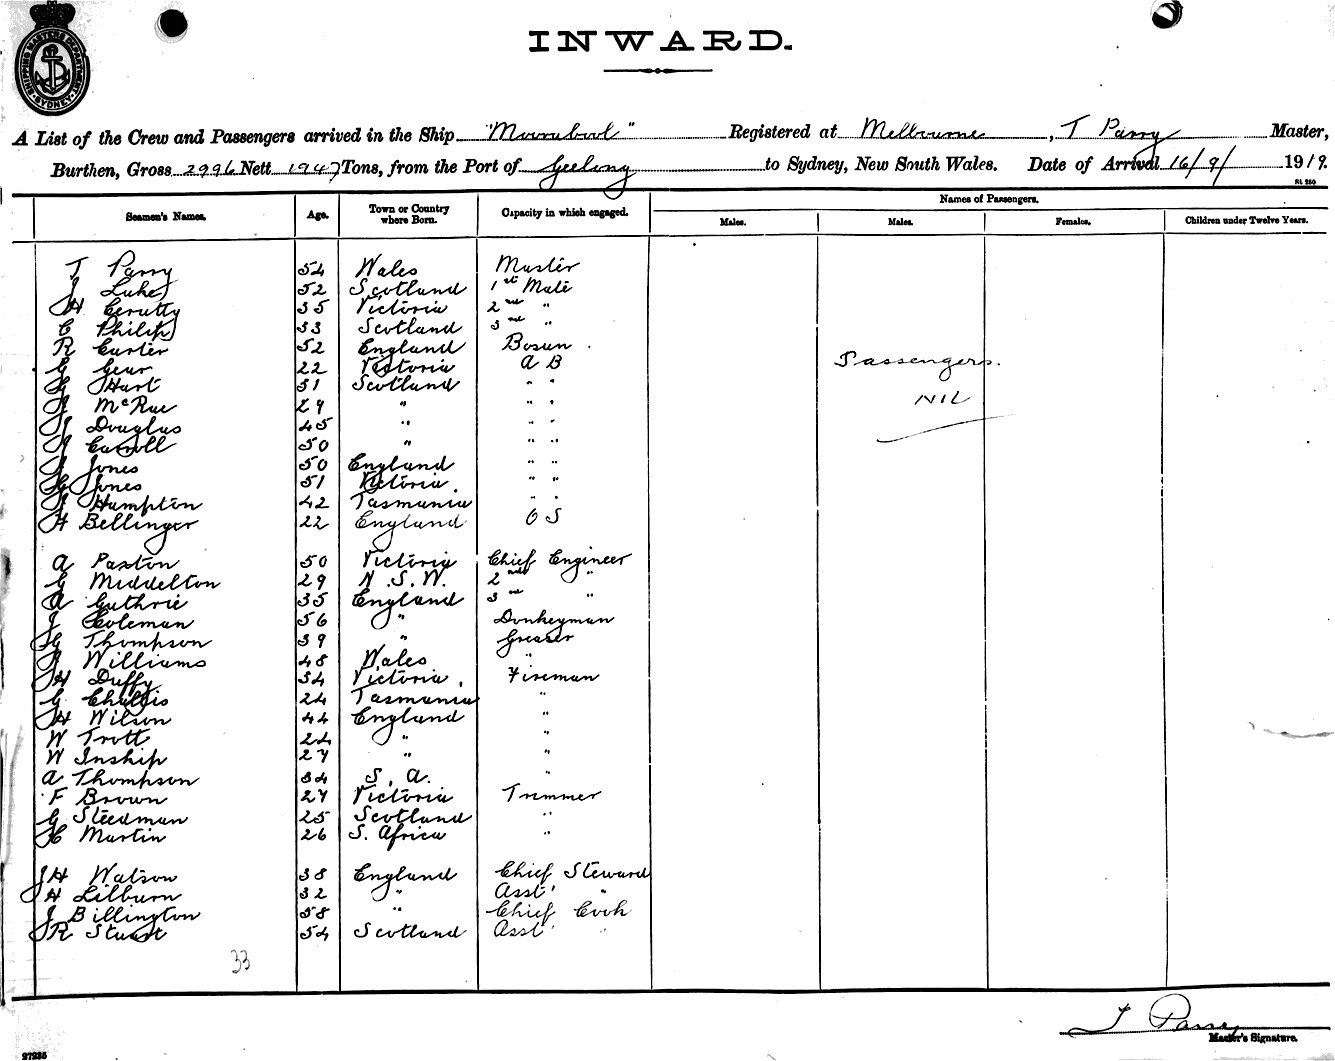 SHIPPING MASTERS DEPARTMENT SYDNEY
INWARD.
A List of the Crew and Passengers arrived in the Ship "Moorabool" Registered at Melbourne, T Parry Master,
Burthen, Gross 2996 Nett 1947 Tons, from the Port of Geelong to Sydney, New South Wales. Date of Arrival 16/9/ 1919.
Names of Passengers.
Seamen's Names. Age. Town or Country where Born. Capacity in which engaged. Males. Males. Females. Children under Twelve Years.
T Parry 54 Wales Master
J Luke 52 Scotland 1st Mate
H Cerutty 35 Victoria 2nd "
C Philip 33 Scotland 3rd "
R Carter 52 England Bosun.
G Gear 22 Victoria A B
G Hart 31 Scotland " "
Passengers.
J McRae 29 " " "
NIL
J Douglas 45 " " "
J Carroll 50 " " "
J Jones 50 England " "
G Jones 51 Victoria. " "
J Hampton 42 Tasmania " "
H Bellinger 22 England O S
A Paston 50 Victoria Chief Engineer
G Middelton 29 N.S.W. 2nd "
A Guthrie 35 England 3rd "
J Coleman 56 " Donkeyman
G Thompson 39 " Greaser
J Williams 48 Wales "
H Duffy 34 Victoria. Fireman
G Challis 24 Tasmania "
H Wilson 44 England "
W Trott 24 " "
W Inship 27 " "
A Thompson 34 S. A. "
F Brown 27 Victoria Trimmer
G Steedman 25 Scotland "
H Martin 26 S. Africa "
J H Watson 38 England Chief Steward
H Lilburn 32 " Asst "
J Billington 58 " Chief Cook
J R Stuart 54 Scotland Asst "
33
T Parry
Master's Signature.
27235